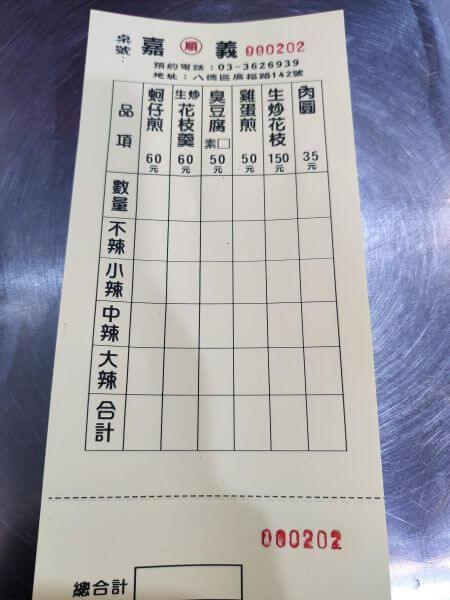 桌號: 嘉 順 義 000202
預約電話:03-3626939
地址:八德區廣福路142號
品項 蚵仔煎 60元 生炒花枝羹 60元 臭豆腐 素□ 50元 雞蛋煎 50元 生炒花枝 150元 肉圓 35元
數量
不辣
小辣
中辣
大辣
合計
000202
總合計